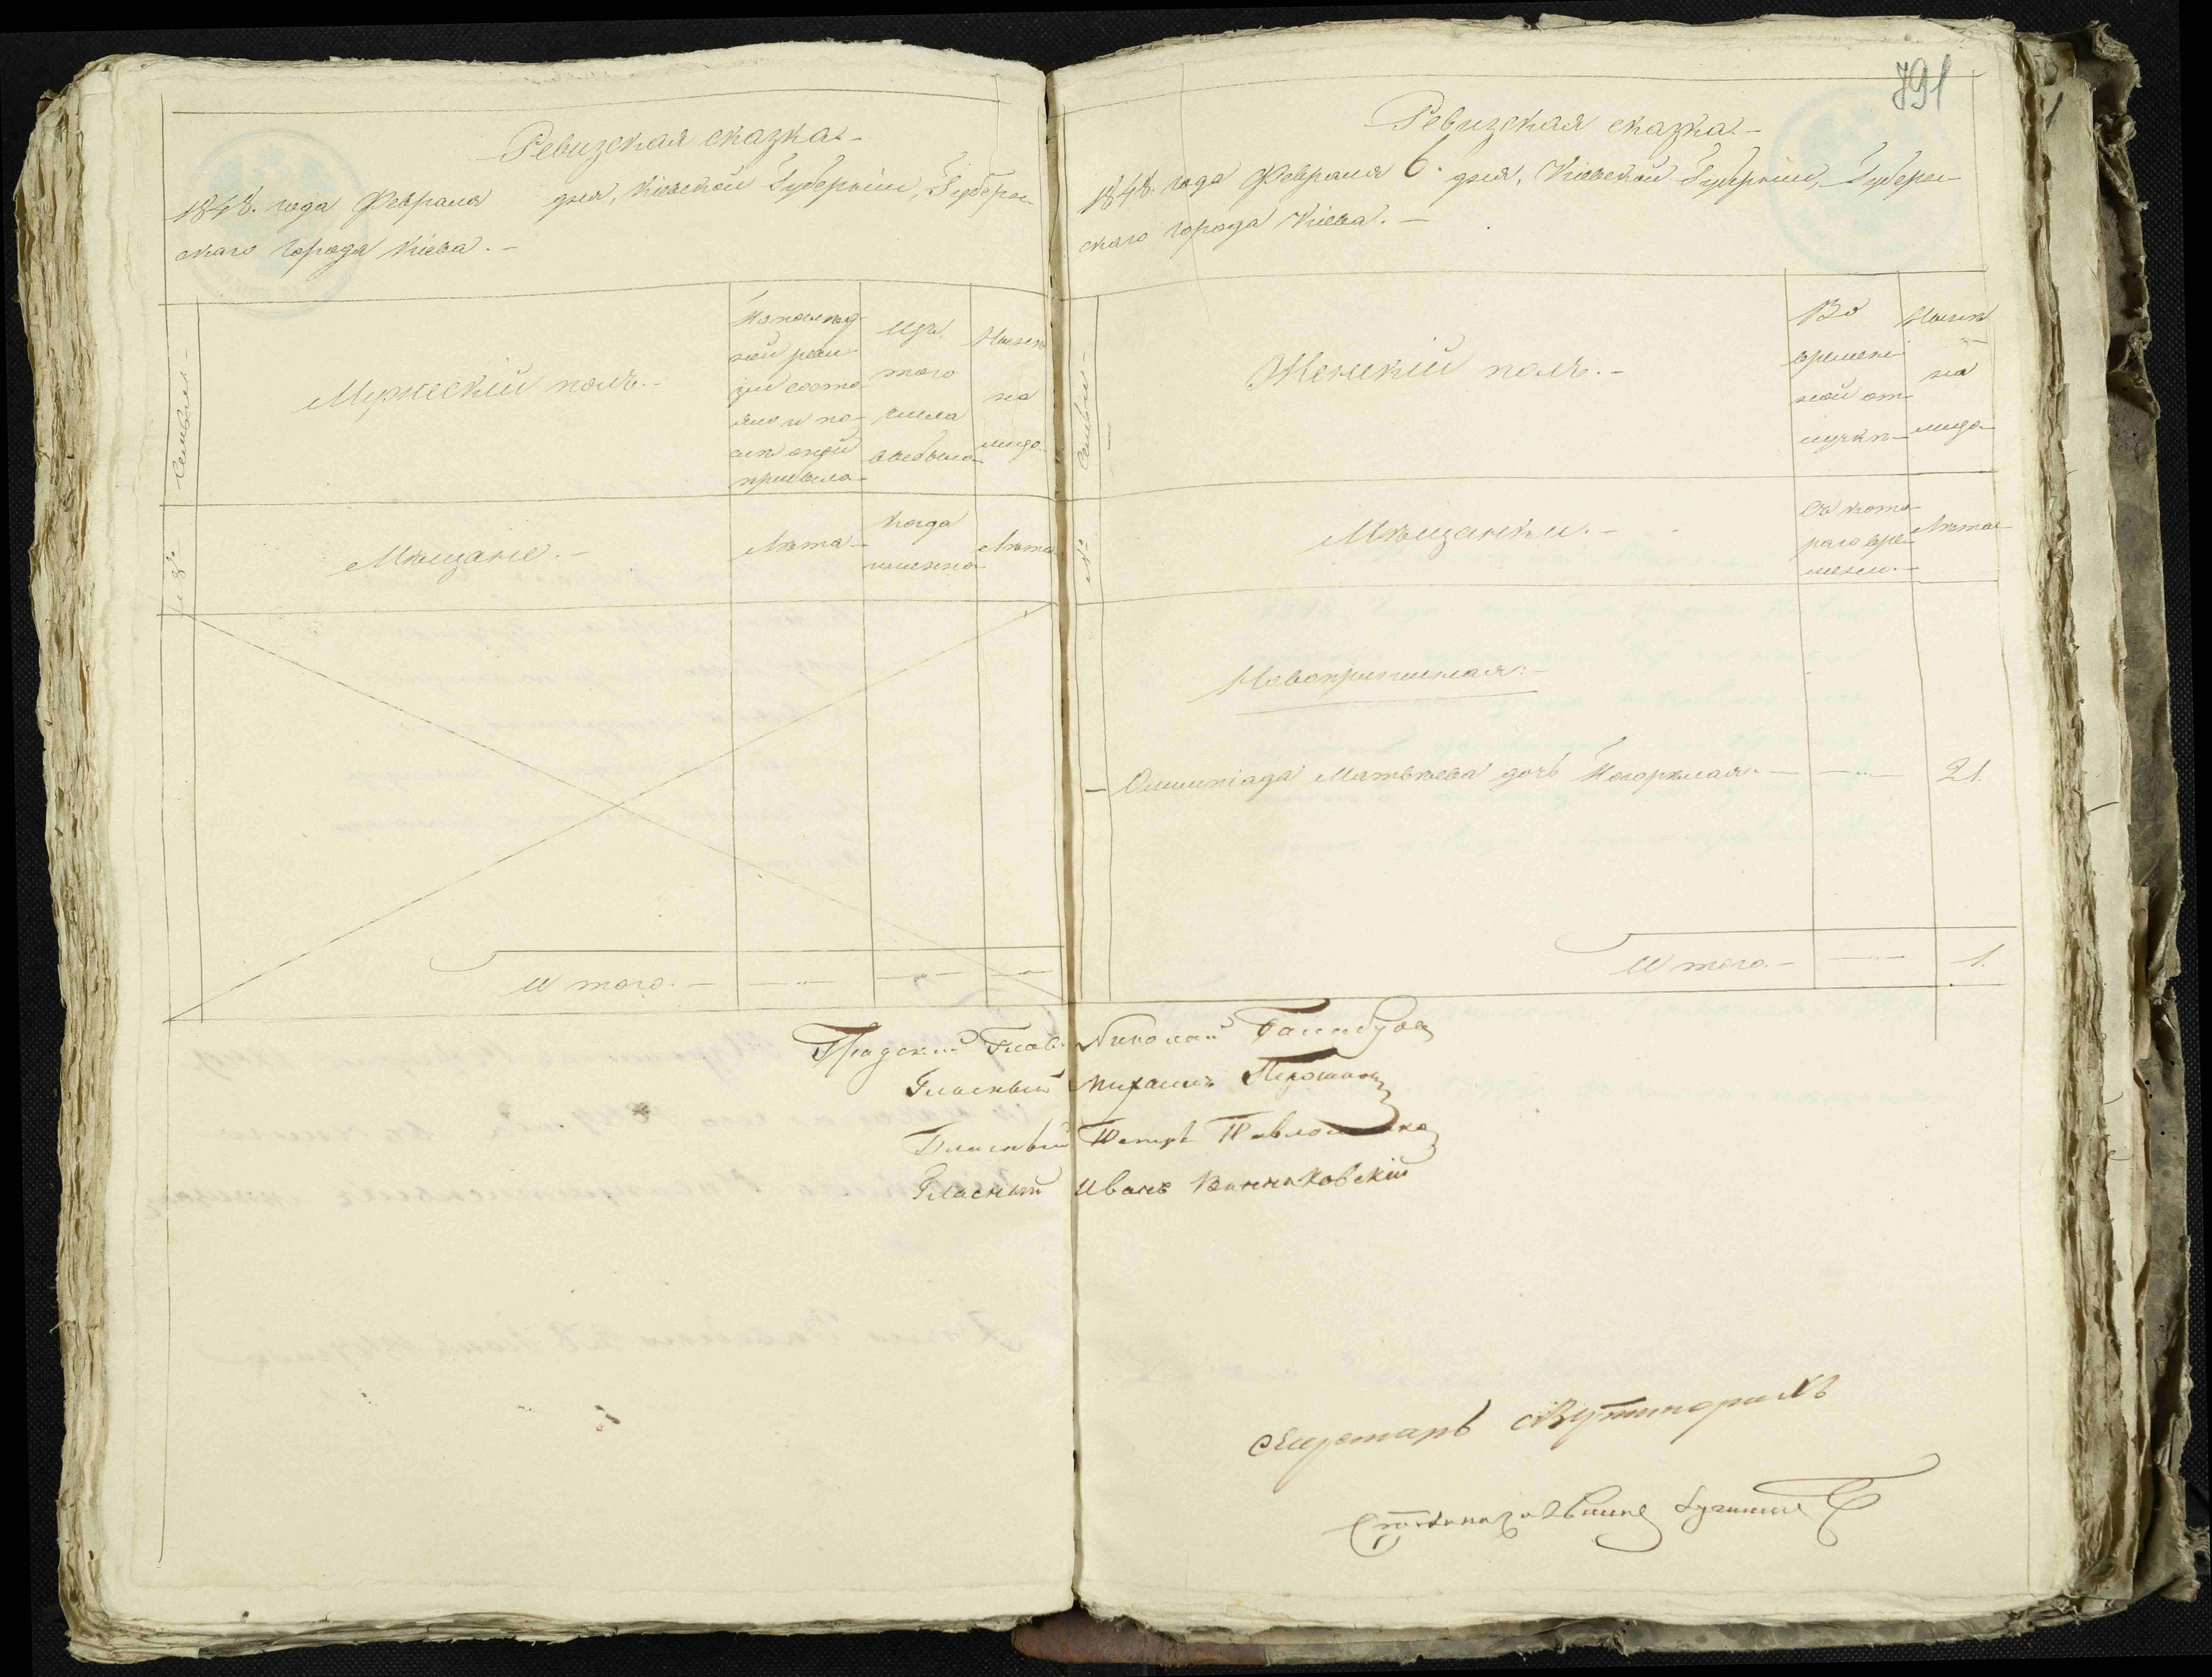 Ревизская сказка.-
1848. года Февраля дня, Кіевской Губерніи, Губернс-
скаго города Кіева. -
Семьи
№
Мужескій полъ. -
По послѣд-
ней реви-
зіи состо-
яло и по-
слѣ оной
прибыло
Изъ
того
числа
выбыло
Нынѣ
на
лицо
Мѣщане. -
Лѣта
когда
именно
Лѣта
И того. -
791
Ревизская сказка.-
1848. года Февраля 6. дня, Кіевской Губерніи, Губерн-
скаго города Кіева. -
Семьи
№
Женскій полъ. -
Во
времен-
ной от-
лучкѣ
Нынѣ
на
лицо
Мѣщанки. -
Съ кото-
раго вре-
мени.
Лѣта
Новоприписная: -
Олимпіада Матвѣева дочь Погорѣлая. - 21.
И того. - 1.
Градскій Глава Николай Балабуха
Гласный Михаилъ
Гласный Петръ
Гласный Иванъ Винниковскій
Секретарь
Столоначальникъ